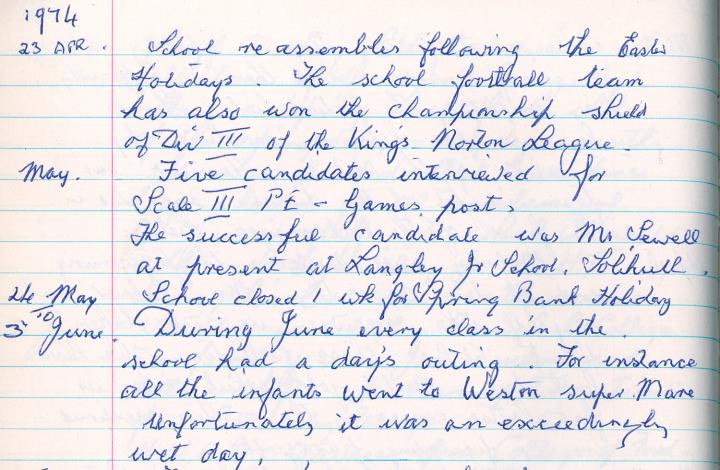 1974
23 APR. School re assembles following the Easter
Holidays. The school football team
has also won the championship shield
of Div III of the Kings Norton League.
May. Five candidates interviewed for
Scale III PE - Games post.
The successful candidate was Mr Sewell
at present at Langley Jr School, Solihull.
24 May School closed 1 wk for Spring Bank Holiday
to
3 June. During June every class in the
school had a day's outing. For instance
all the infants went to Weston super Mare
Unfortunately it was an exceedingly
wet day.